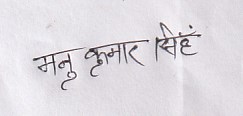 मनु कुमार सिहं